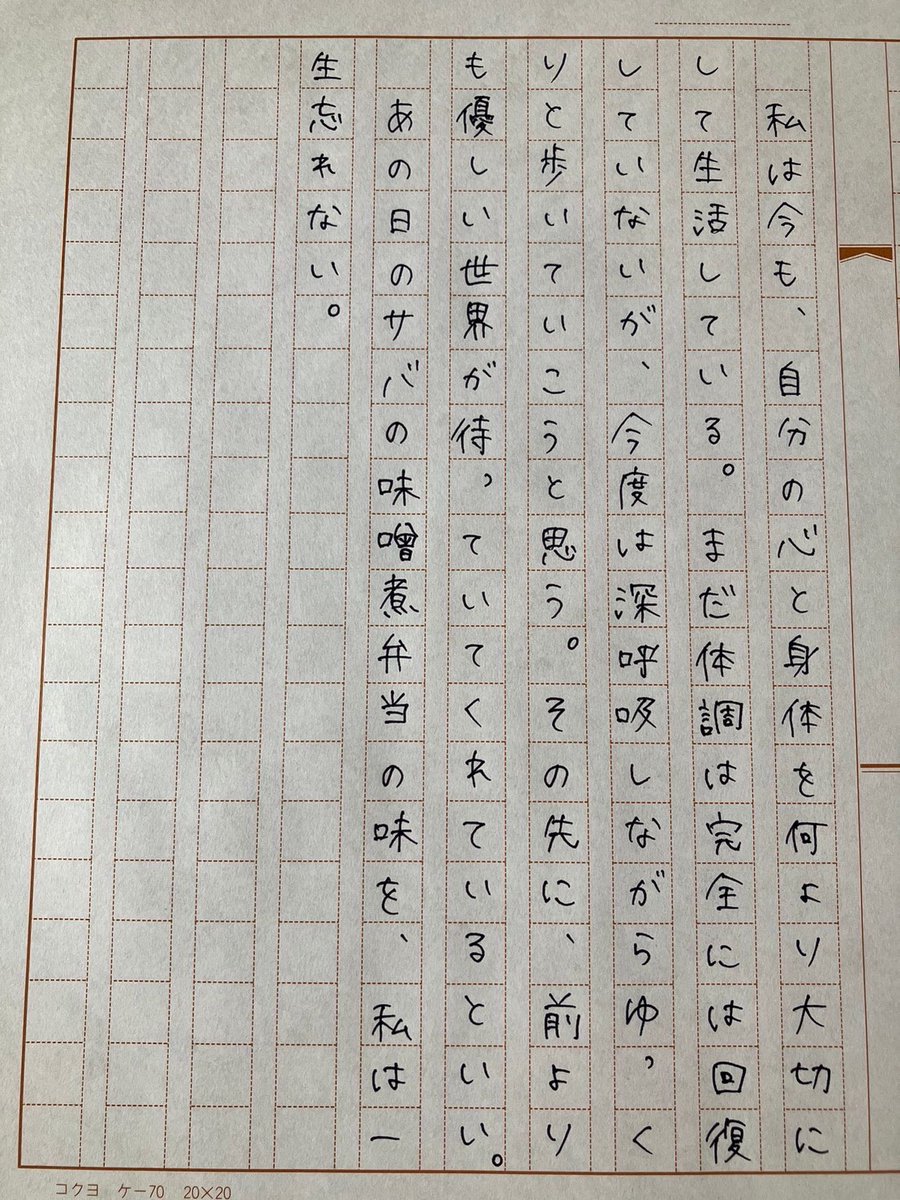 私は今も、自分の心と身体を何より大切に
して生活している。まだ体調は完全には回復
していないが、今度は深呼吸しながらゆっく
りと歩いていこうと思う。その先に、前より
も優しい世界が待っていてくれているといい。
　あの日のサバの味噌煮弁当の味を、私は一
生忘れない。
コクヨ　ケー70　20×20